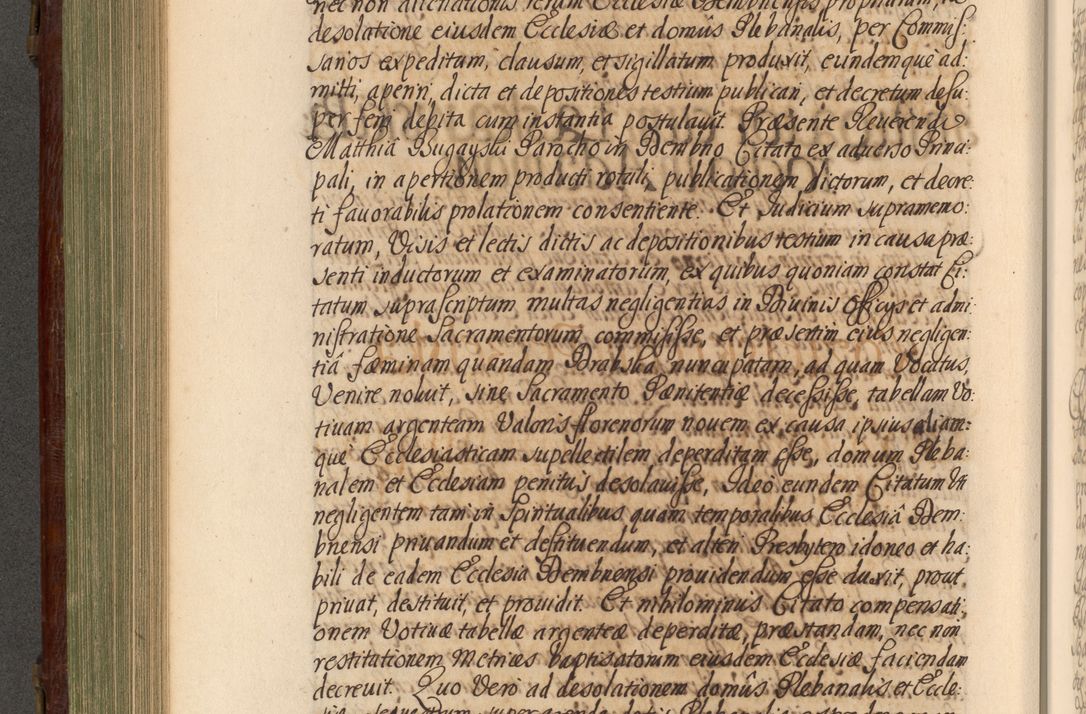 nec non alienationis rerum Ecclesiæ Dembnensis propriarum,
desolatione eiusdem Ecclesiæ et domûs Plebanalis, per Commis:
sarios expeditum, clausum, et sigillatum produxit, eundemque ad:
mitti, aperiri, dicta et depositiones testium publicari, et decretum desu:
per ferri debita cum instantia postulauit. Præsente Reuerendo
Matthia Bugayski Parocho in Dembno Citato ex aduerso Princi:
pali, in apertionem producti rotuli, publicationem dictorum, et decre:
ti fauorabilis prolationem consentiente. Et Judicium supramemo:
ratum, Visis et lectis dictis ac depositionibus testium in causa præ:
senti inductorum et examinatorum, ex quibus quoniam constat Ci:
tatum suprascriptum multas negligentias in Diuinis Officijs et admi:
nistratione Sacramentorum commisisse, et præsertim eius negligen:
tiâ fæminam quandam Drabska nuncupatam, ad quam Vocatus,
Venire noluit, sine Sacramento Pænitentiæ decessisse, tabellam Vo:
tiuam argenteam Valoris florenorum nouem ex causa ipsius aliam:
què Ecclesiasticam supellectilem deperditam esse, domum Pleba:
nalem et Ecclesiam penitus desolauisse, Ideo eundem Citatum Vti
negligentem tam in Spiritualibus quam temporalibus Ecclesiâ Dem:
bnensi priuandum et destituendum, et alteri Presbytero idoneo et ha:
bili de eadem Ecclesia Dembnensi prouidendum esse duxit, prout
priuat, destituit, et prouidit. Et nihilominus Citato compensati:
onem Votiuæ tabellæ argenteæ deperditæ, præstandam, nec non
restitationem Metrices baptisatorum eiusdem Ecclesiæ faciendam
decreuit. Quo Vero ad desolationem domûs Plebanalis et Eccle:
siæ sequestrum super